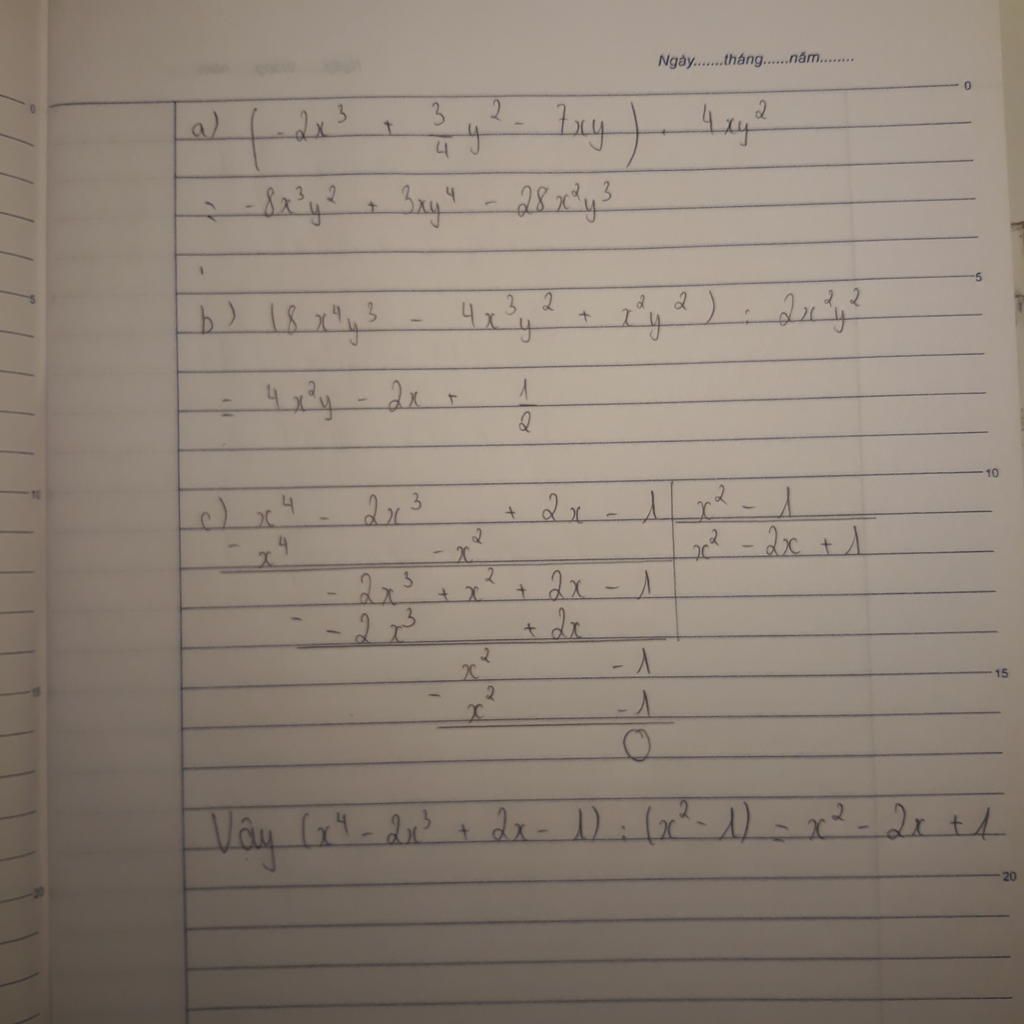 Ngày.......tháng......năm........
0
a) (-2x³ + 3/4 y² - 7xy) . 4xy²
= -8x³y² + 3xy⁴ - 28x²y³
5
b) (8x⁴y³ - 4x³y² + x²y²) : 2x²y²
= 4x²y - 2x + 1/2
10
c) x⁴ - 2x³ + 2x - 1 | x² - 1
- x⁴ - x² | x² - 2x + 1
- 2x³ + x² + 2x - 1
- - 2x³ + 2x
x² - 1
15
- x² - 1
0
Vậy (x⁴ - 2x³ + 2x - 1) : (x² - 1) = x² - 2x + 1
20